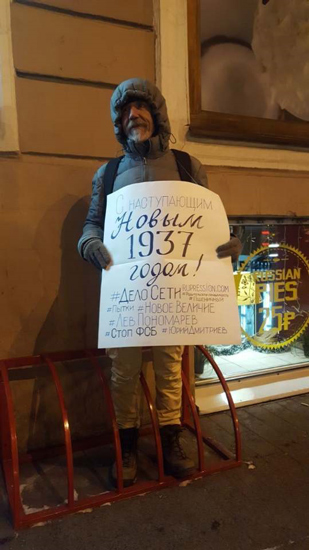 С наступающим
Новым
1937
годом!
#Дело Сети
RUPRESSION.COM
#Пытки #Новое Величие
#Лев Пономарев
#Стоп ФСБ #Юрий Дмитриев
RUSSIAN